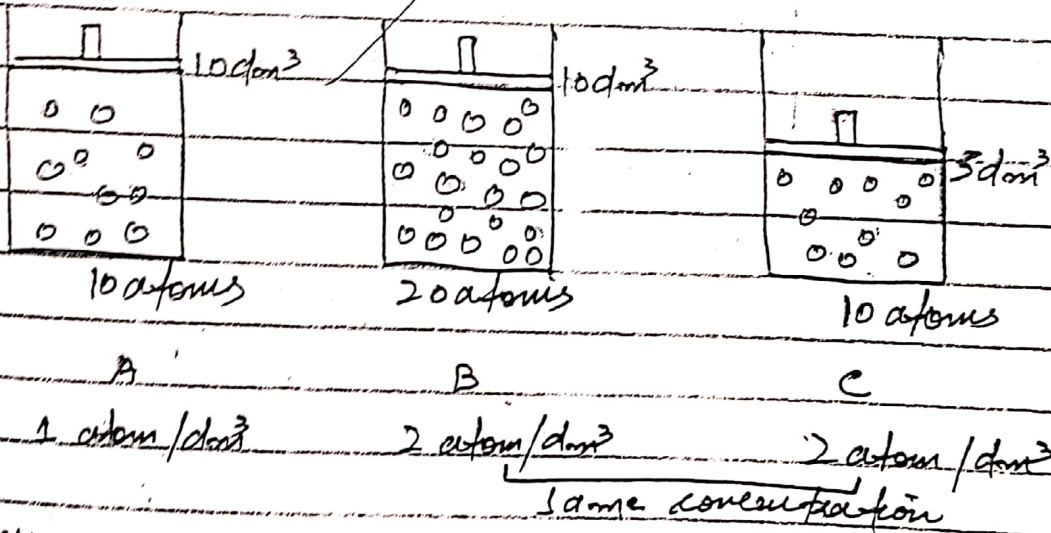 10dm³ 10dm³ 3dm³
10 atoms 20 atoms 10 atoms
A B C
1 atom/dm³ 2 atom/dm³ 2 atom/dm³
same concentration